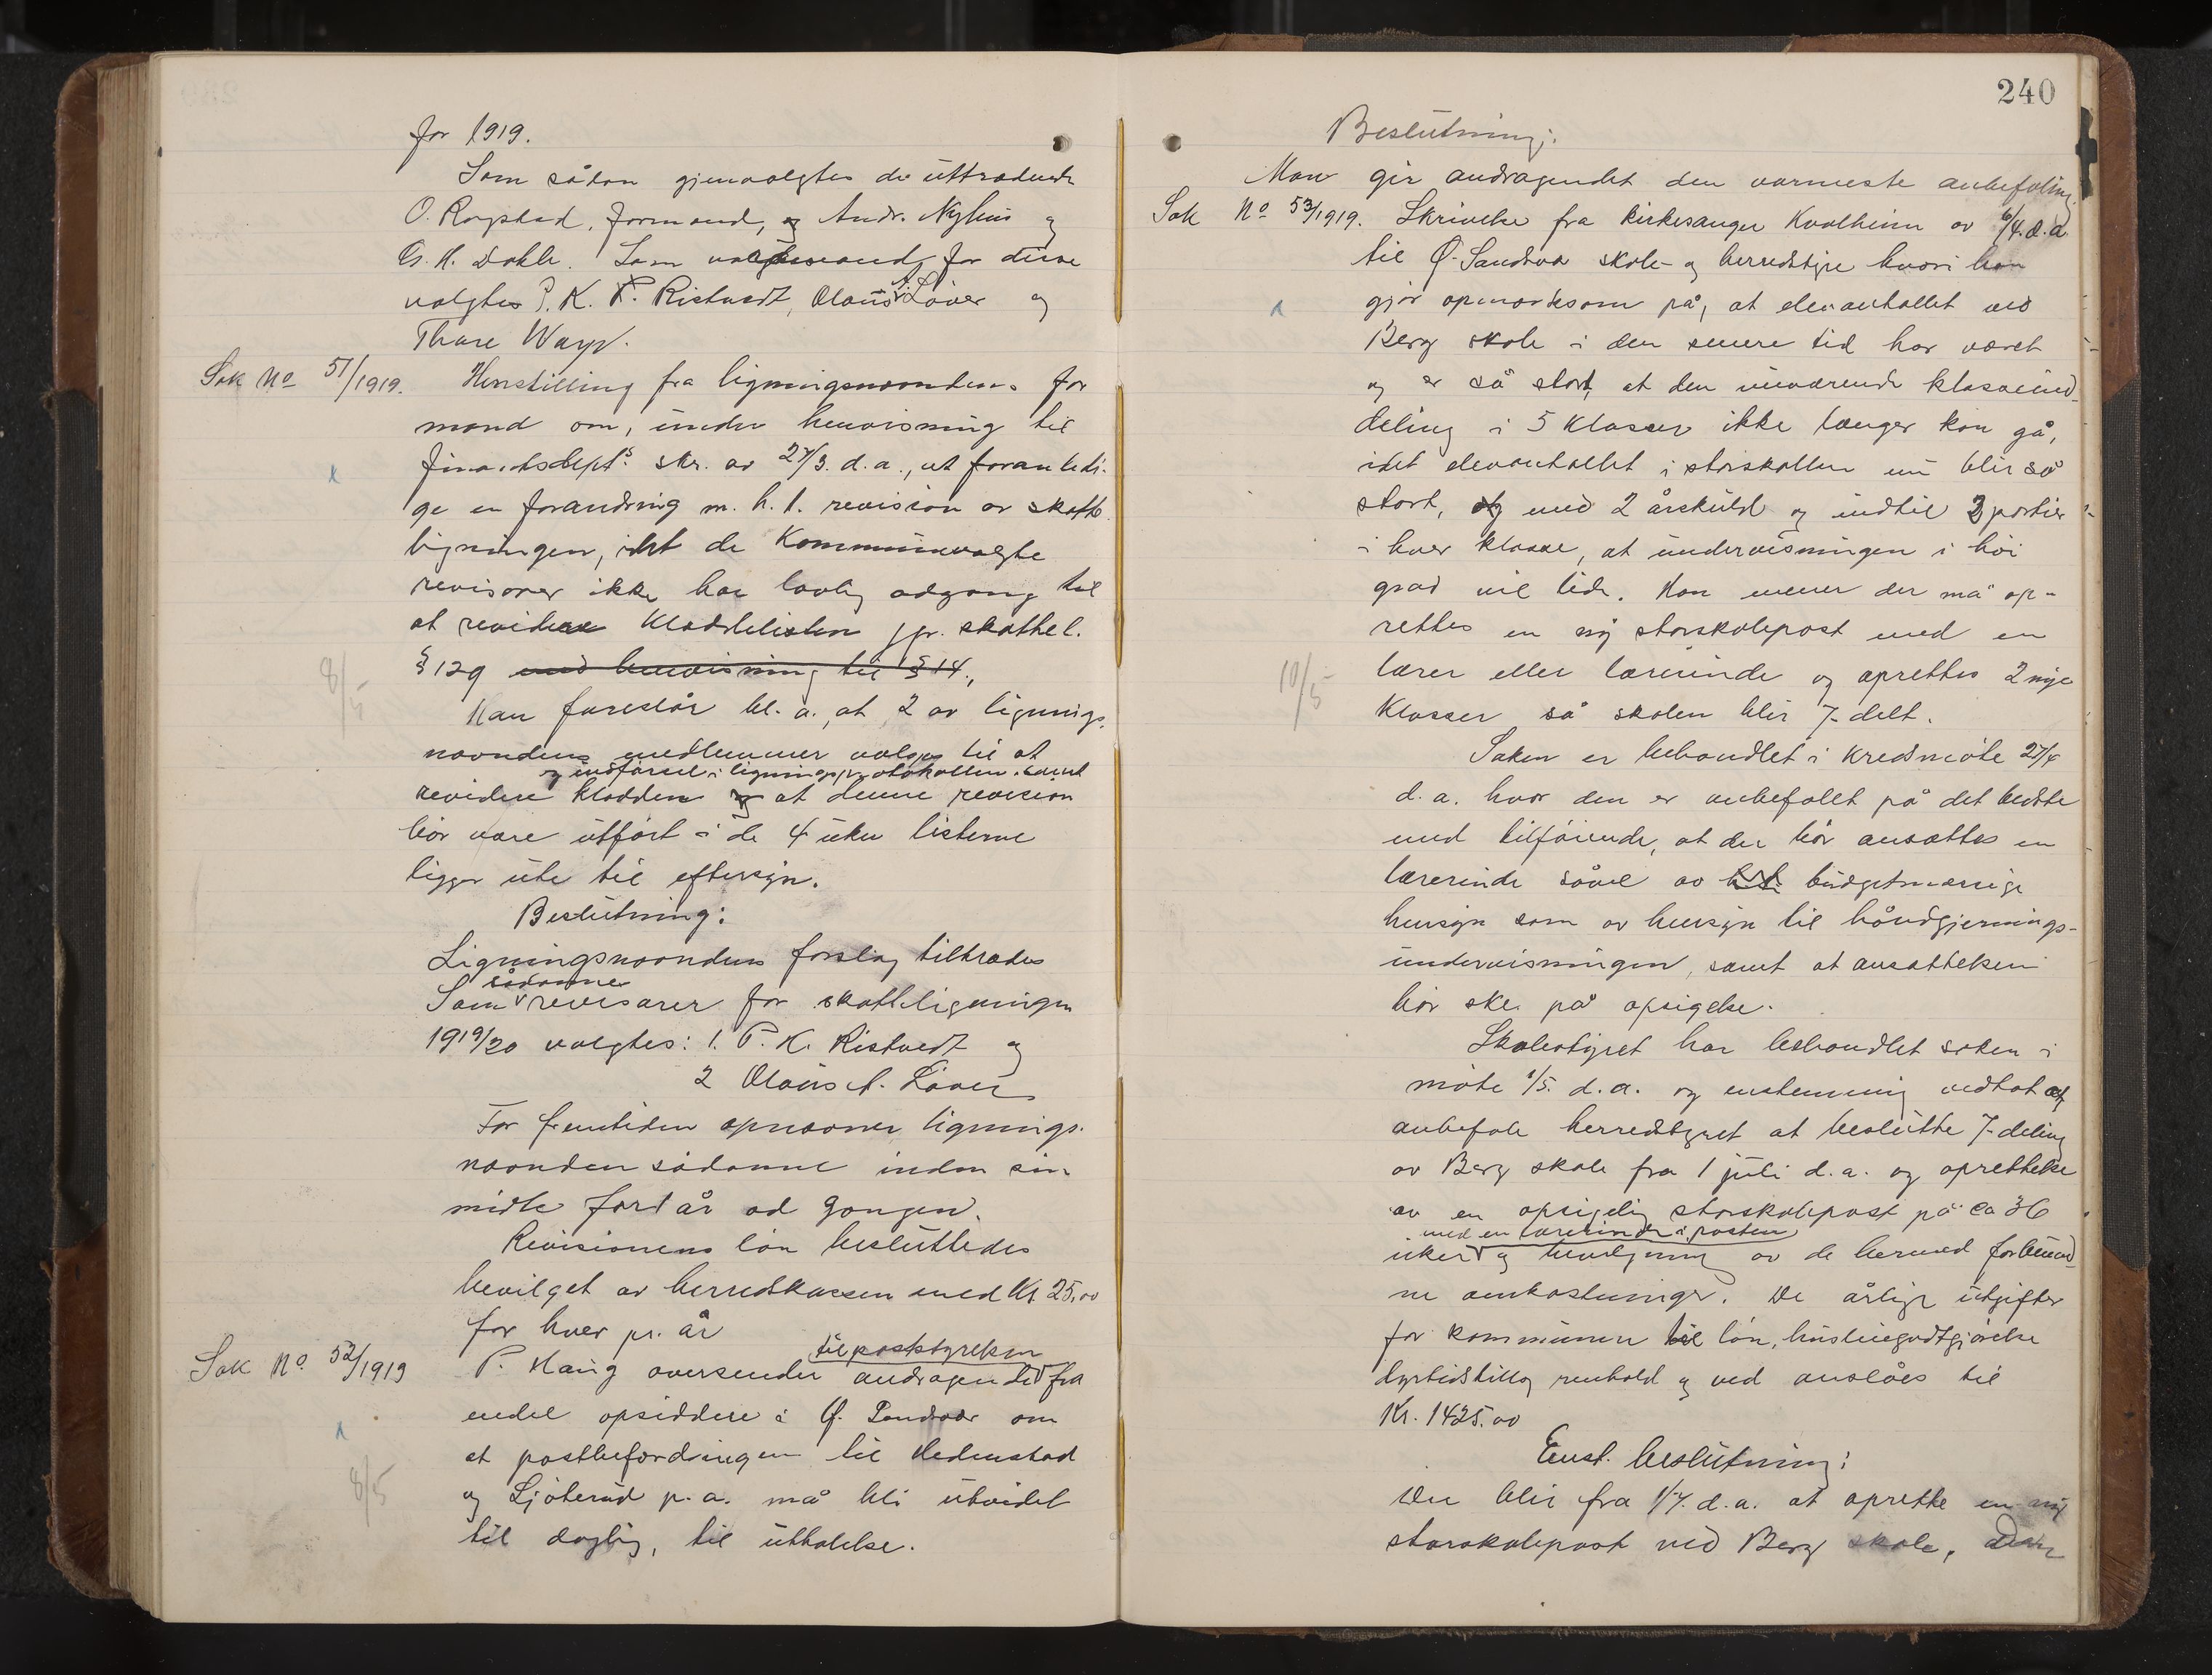 for 1919.
Som sådan gjenvalgtes de uttrædende
O. Rogstad, formand, og Andr. Nyhus og
G. H. Dahle. Som varamænd for disse
valgtes P. K. Ristvedt, Olaus A. Løver og
Thore Waye.
Sak No 51/1919. Henstilling fra ligningsnævndens for
mand om, under henvisning til
finantsdepts. skr. av 27/3. d.a., at foranledi-
ge en forandring m. h. t. revision av skatte
ligningen, idet de kommunevalgte
revisorer ikke har lovlig adgang til
at revidere kladdelisten jfr. skattel.
§ 129 med henvisning til § 14.,
Man foreslår bl. a., at 2 av lignings
nævndens medlemmer vælges til at
og indførsel i ligningsprotokollen samt
revidere kladden og at denne revision
bør være utført i de 4 uker listerne
ligger ute til eftersyn.
Beslutning:
Ligningsnævndens forslag tiltrædes
sådanne
Som revisorer for skatteligningen
1919/20 valgtes: 1. P. K. Ristvedt og
2 Olaus A. Løver
For fremtiden opnævner lignings-
nævnden sådanne inden sin
midte for 1 år ad gangen.
Revisionens løn besluttedes
bevilget av herredskassen med Kr 25,00
for hver pr. år
til poststyrelsen
Sak No. 52/1919 P. Haug oversender andragende fra
endel opsiddere i Ø. Sandsvær om
at postbefordringen til Hedenstad
og Ljøterud p.a. må bli utvidet
til daglig, til uttalelse.
8/5
8/5
240
Beslutning:
Man gir andragendet den varmeste anbefaling.
Sak No 53/1919. Skrivelse fra kirkesanger Kvalheim av 6/4. d.a.
til Ø. Sandsvær skole- og herredstyre hvori han
gjør opmærksom på, at elevantallet ved
Berg skole i den senere tid har været
og er så stort, at den nuværende klasseind-
deling i 5 klasser ikke længer kan gå,
idet elevantallet i storskolen nu blir så
stort, og med 2 årskuld og indtil 3 partier
i hver klasse, at undervisningen i høi
grad vil lide. Han mener der må op-
rettes en ny storskolepost med en
lærer eller lærerinde og oprettes 2 nye
klasser så skolen blir 7-delt.
10/5
Saken er behandlet i kredsmøte 27/4
d.a. hvor den er anbefalet på det bedste
med tilføiende, at der bør ansættes en
lærerinde såvel av budgetmæssige
hensyn som av hensyn til håndgjernings-
undervisningen, samt at ansættelsen
bør ske på opsigelse.
Skolestyret har behandlet saken i
møte 1/5. d.a. og enstemmig vedtat at
anbefale herredstyret at beslutte 7-deling
av Berg skole fra 1 juli d.a. og oprettelse
av en opsigelig storskolepost på ca 36
med en lærerinde i posten
uker og bevilgning av de hermed forbund-
ne omkostninger. De årlige utgifter
for kommunen til løn, husleiegodtgjørelse
dyrtidstillæg renhold og ved anslåes til
Kr. 1425.00
Enst. beslutning:
Der blir fra 1/7. d.a. at oprette en ny
storskolepost ved Berg skole,